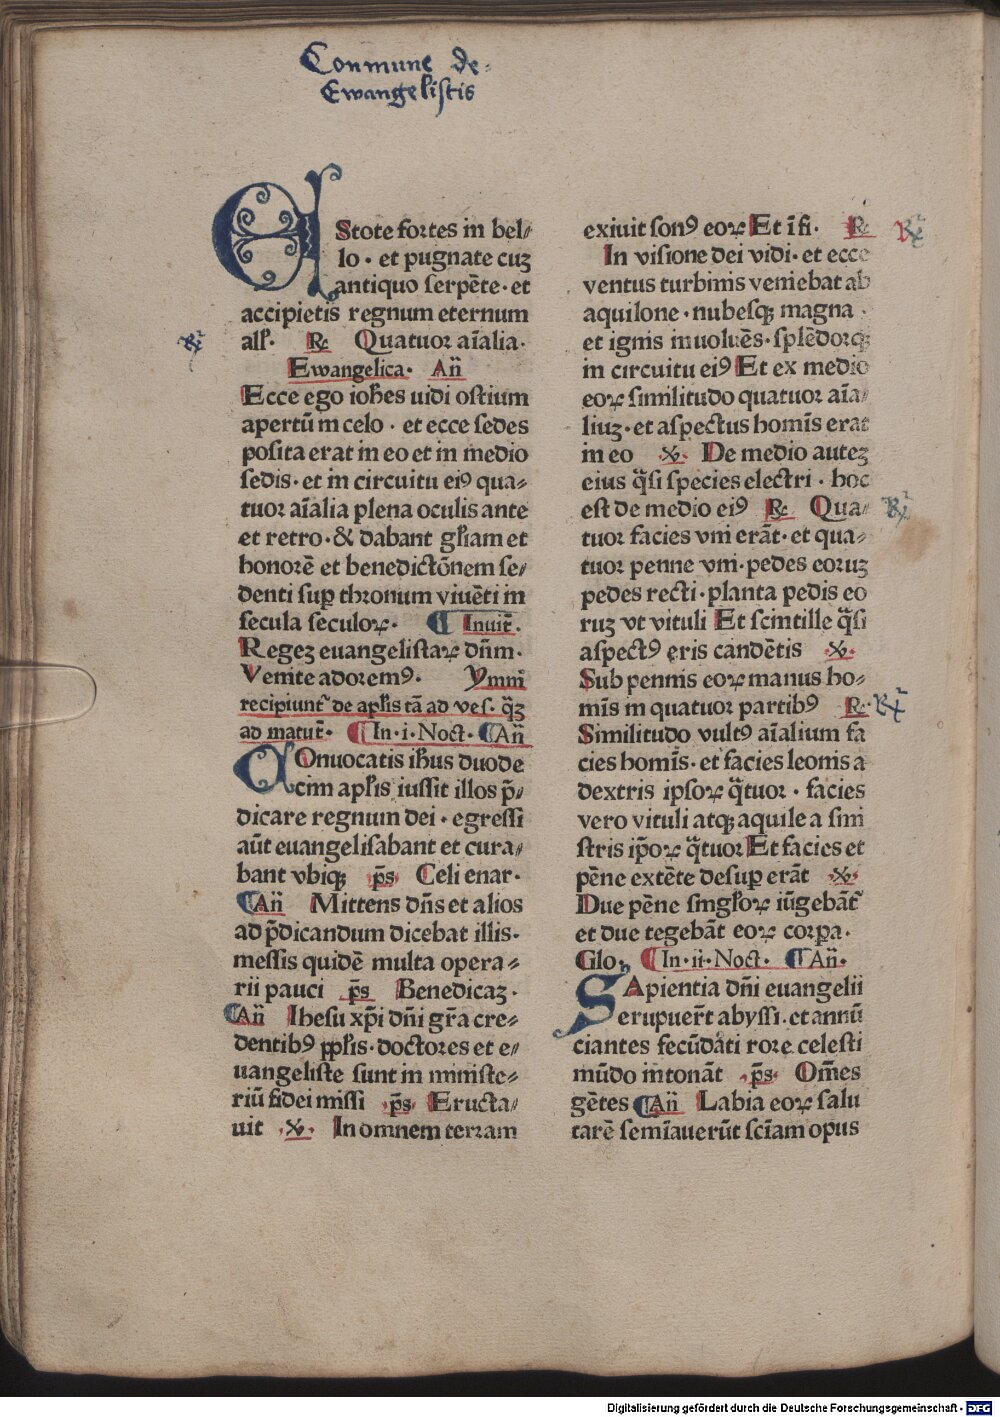 Conmune de-
Ewangelistis
EStote fortes in bel⸗
lo · et pugnate cuꝫ
antiquo serpēte · et
accipietis regnum eternum
all'. ℞ Quatuor aīalia.
Ewangelica. Añ
Ecce ego ioh̄es uidi ostium
apertū in celo · et ecce sedes
posita erat in eo et in medio
sedis · et in circuitu eiꝰ qua⸗
tuor aīalia plena oculis ante
et retro · & dabant gl'iam et
honorē et benedictōnem se⸗
denti sup thronum viuēti in
secula seculoꝝ. ¶ Inuit̄.
Regeꝫ euangelistaꝝ dn̄m.
Venite adoremꝰ. Ymni
recipiunt̄ de apl'is tā ad ves. q̄ꝫ
ad matut̄. ¶ In · i · Noct. ¶ Añ
COnuocatis ih̄us duode
cim apl'is iussit illos p̄⸗
dicare regnum dei · egressi
aūt euangelisabant et cura⸗
bant vbiqꝫ p̄s Celi enar.
¶ Añ Mittens dn̄s et alios
ad p̄dicandum dicebat illis.
messis quidē multa opera⸗
rii pauci p̄s Benedicaꝫ.
¶ Añ Ihesu xp̄i dn̄i gr̄a cre⸗
dentibꝰ ppl'is · doctores et e⸗
uangeliste sunt in ministe⸗
riū fidei missi p̄s Eructa⸗
uit ℣. In omnem terram
exiuit sonꝰ eoꝝ Et ī fi. ℞ ℞
In visione dei vidi · et ecce
ventus turbinis veniebat ab
aquilone · nubesqꝫ magna
et ignis inuoluēs · splēdorqꝫ
in circuitu eiꝰ Et ex medio
eoꝝ similitudo quatuor aīa⸗
liuꝫ · et aspectus homīs erat
in eo ℣. De medio auteꝫ
eius q̄si species electri · hoc
est de medio eiꝰ ℞ Qua⸗ ℞
tuor facies vni erāt · et qua⸗
tuor penne vni · pedes eoruꝫ
pedes recti · planta pedis eo
ruꝫ vt vituli Et scintille q̄si
aspectꝰ eris candētis ℣.
Sub pennis eoꝝ manus ho⸗
mīs in quatuor partibꝰ ℞. ℞
Similitudo vultꝰ aīalium fa
cies homīs · et facies leonis a
dextris ipsoꝝ q̄tuor · facies
vero vituli atqꝫ aquile a sini
stris ip̄oꝝ q̄tuor Et facies et
pēne extēte desup erāt ℣.
Due pēne singl'oꝝ iūgebāt̄
et due tegebāt eoꝝ corpa.
Glo. ¶ In · ii · Noct. ¶ Añ.
SApientia dn̄i euangelii
erupuer̄t abyssi · et annū
ciantes fecūdati rore celesti
mūdo intonāt p̄s Om̄es
gētes ¶ Añ Labia eoꝝ salu
tarē semīauerūt sciam opus
Digitalisierung gefördert durch die Deutsche Forschungsgemeinschaft - DFG